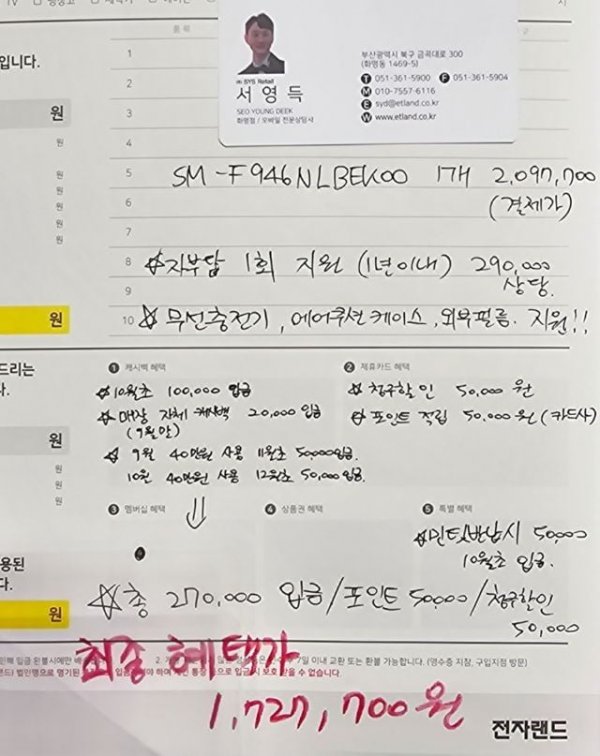 품목
입니다.
원
원
원
원
원
원
원
1
2
3
4
5
6
7
8
9
10
m SYS Retail
서영득
SEO YOUNG DEEK
화명점 / 모바일 전문상담사
부산광역시 북구 금곡대로 300
(화명동 1469-5)
T 051-361-5900 F 051-361-5904
M 010-7557-6116
E syd@etland.co.kr
W www.etland.co.kr
SM-F946NLBEK00 1개 2,097,700
(결제가)
☆자부담 1회 지원 (1년이내) 290,000
상당.
☆무선충전기, 에어쿠션케이스, 외부필름. 지원!!
드리는
다.
원
원
원
원
❶ 캐시백 혜택
☆10월초 100,000 입금
☆매장 자체 캐시백 20,000 입금
(9월만)
☆ 9월 40만원 사용 11월초 50,000입금.
10월 40만원 사용 12월초 50,000 입금.
❷ 제휴카드 혜택
☆ 청구할인 50,000 원
☆ 포인트 적립 50,000원 (카드사)
❸ 멤버십 혜택
❹ 상품권 혜택
❺ 특별 혜택
☆민팃반납시 50,000
10월초 입금.
용된
다.
원
☆총 270,000 입금/포인트 50,000/청구할인
50,000
7일 이내 교환 또는 환불 가능합니다. (영수증 지참, 구입지점 방문)
최종 혜택가
1,727,700원
전자랜드